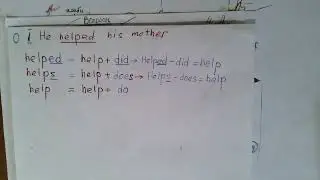 He helped his mother
helped = help + did → Helped - did = help
helps = help + does → Helps - does = help
help = help + do